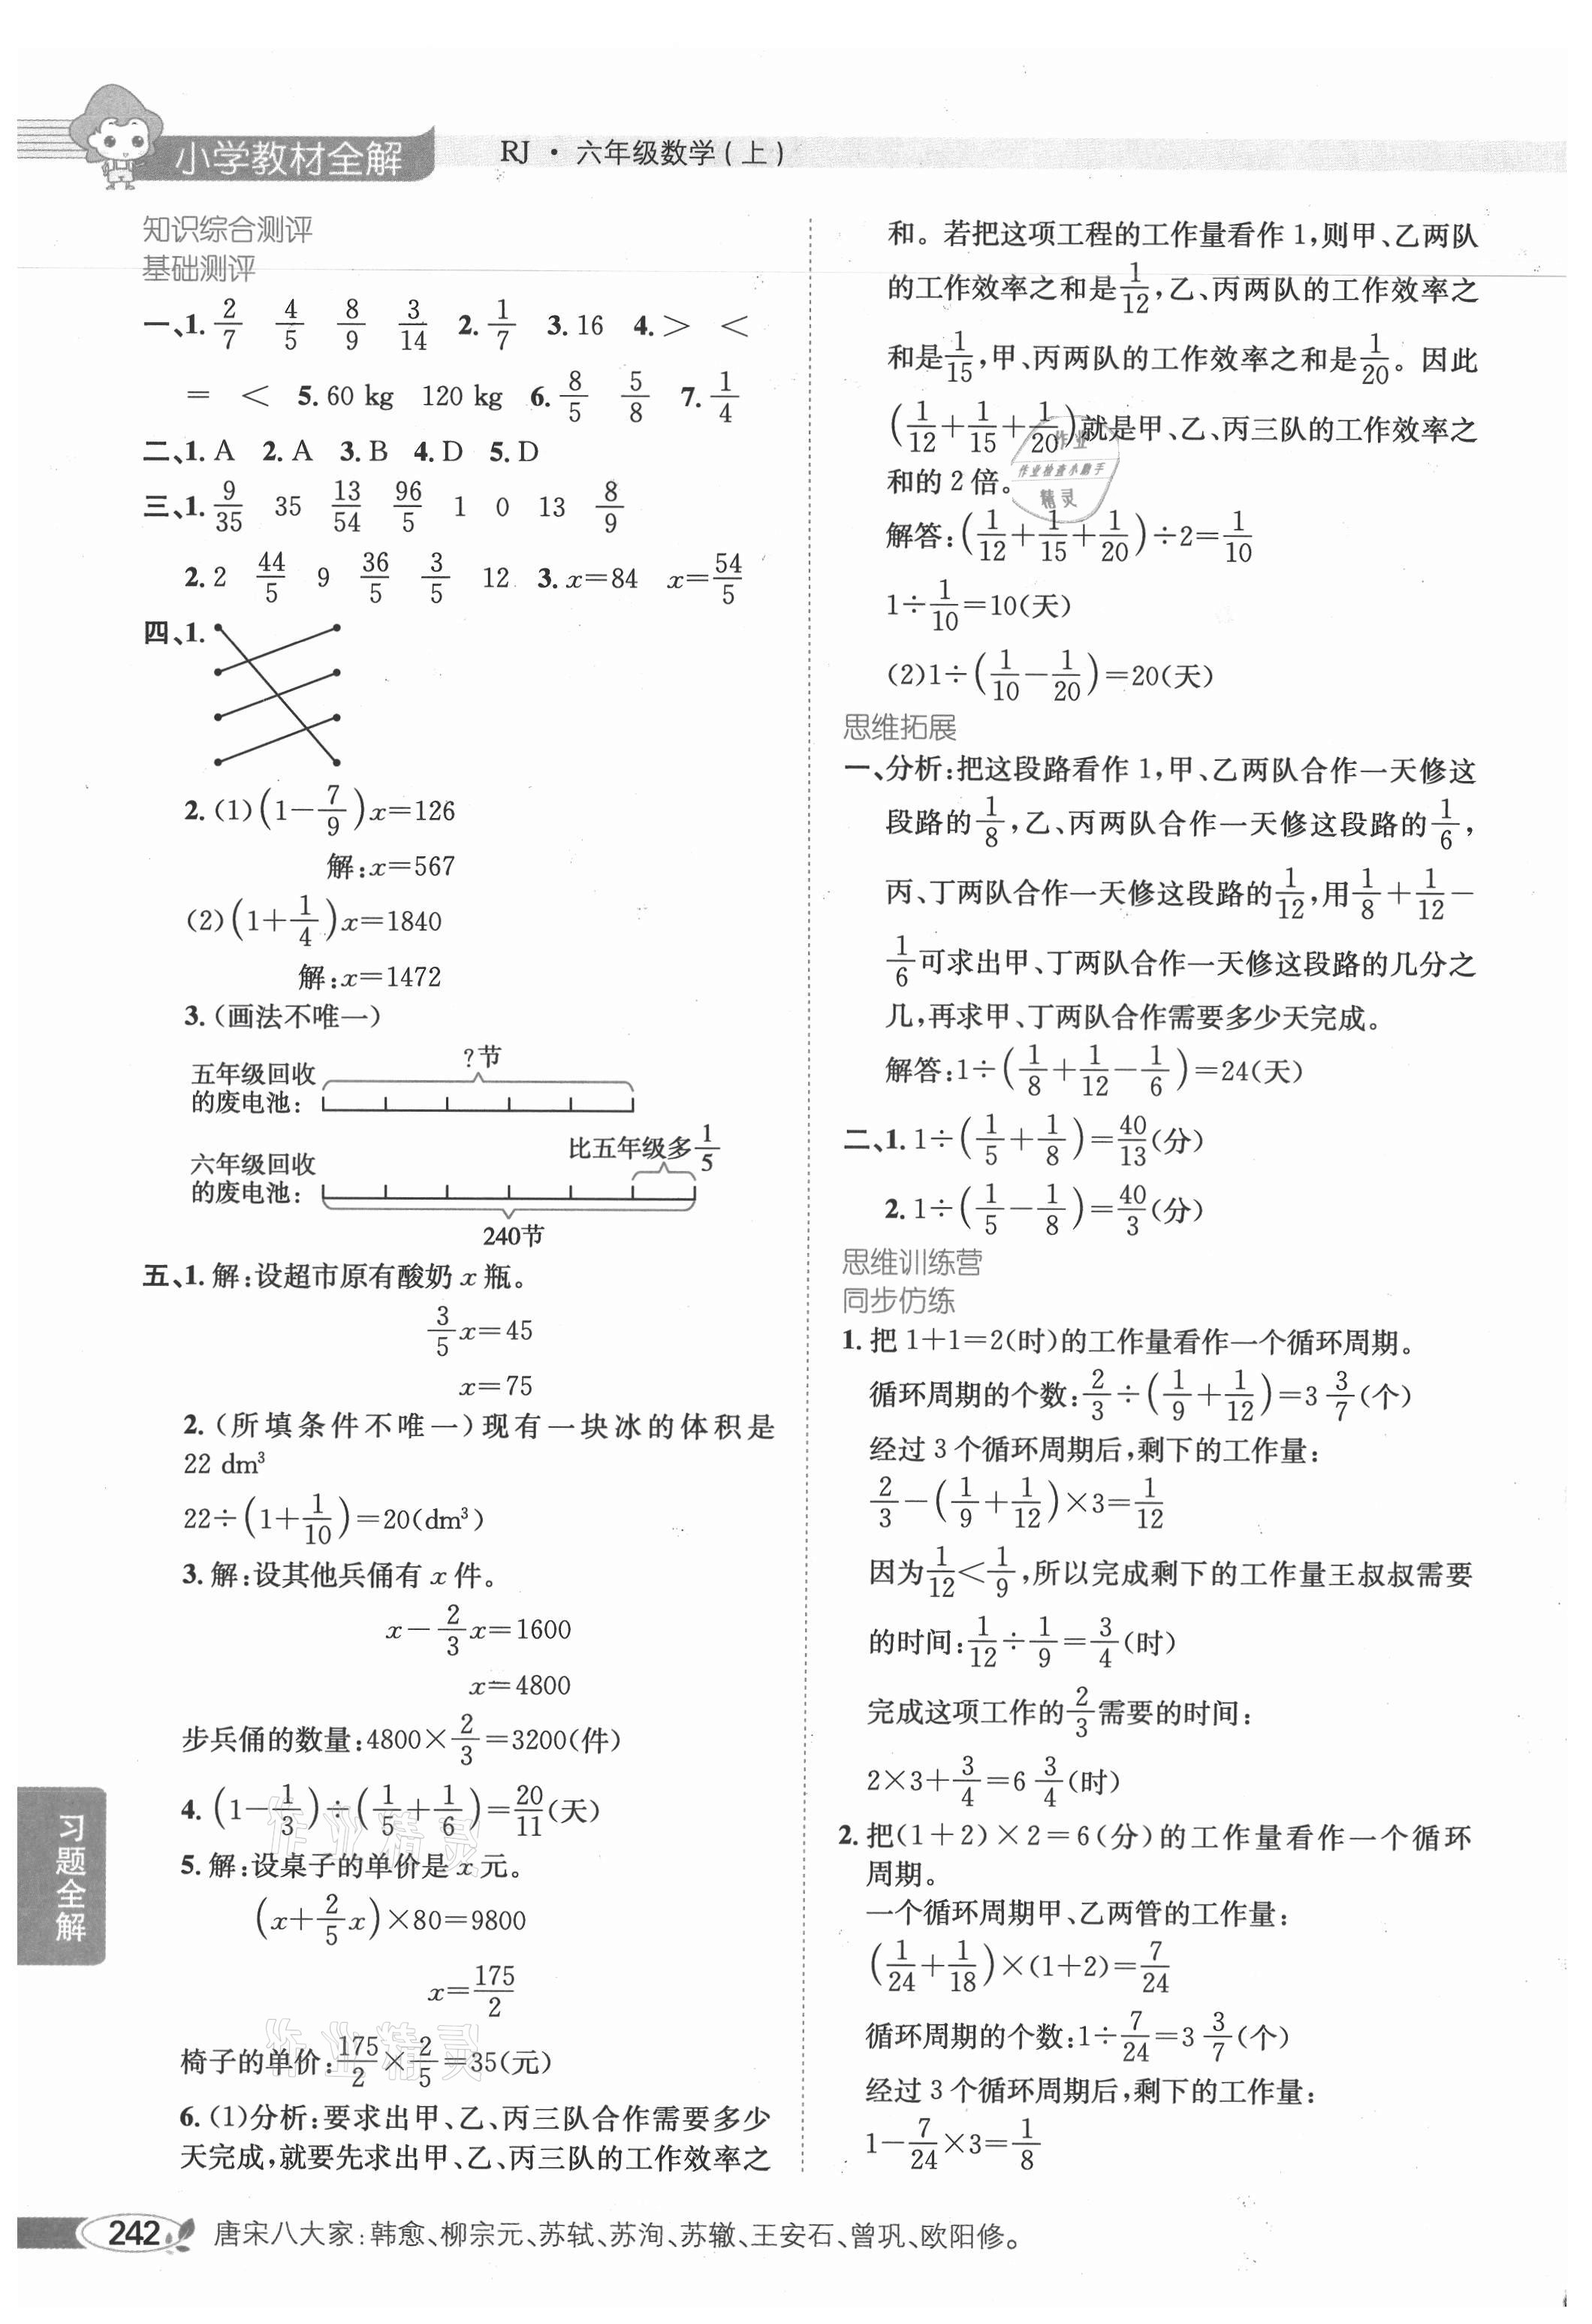 小学教材全解
RJ · 六年级数学(上)
知识综合测评
基础测评
一、1. 2/7 4/5 8/9 3/14 2. 1/7 3. 16 4. > <
= < 5. 60 kg 120 kg 6. 8/5 5/8 7. 1/4
二、1. A 2. A 3. B 4. D 5. D
三、1. 9/35 35 13/54 96/5 1 0 13 8/9
2. 2 44/5 9 36/5 3/5 12 3. x=84 x=54/5
四、1.
2. (1)(1-7/9)x=126
解:x=567
(2)(1+1/4)x=1840
解:x=1472
3.(画法不唯一)
?节
五年级回收
的废电池:
比五年级多1/5
六年级回收
的废电池:
240节
五、1. 解:设超市原有酸奶 x 瓶。
3/5x=45
x=75
2.(所填条件不唯一)现有一块冰的体积是
22 dm³
22÷(1+1/10)=20(dm³)
3. 解:设其他兵俑有 x 件。
x-2/3x=1600
x=4800
步兵俑的数量:4800×2/3=3200(件)
4. (1-1/3)÷(1/5+1/6)=20/11(天)
5. 解:设桌子的单价是 x 元。
(x+2/5x)×80=9800
x=175/2
椅子的单价:175/2×2/5=35(元)
6. (1)分析:要求出甲、乙、丙三队合作需要多少
天完成,就要先求出甲、乙、丙三队的工作效率之
和。若把这项工程的工作量看作 1,则甲、乙两队
的工作效率之和是1/12,乙、丙两队的工作效率之
和是1/15,甲、丙两队的工作效率之和是1/20。因此
(1/12+1/15+1/20)就是甲、乙、丙三队的工作效率之
和的 2 倍。
解答:(1/12+1/15+1/20)÷2=1/10
1÷1/10=10(天)
(2)1÷(1/10-1/20)=20(天)
思维拓展
一、分析:把这段路看作 1,甲、乙两队合作一天修这
段路的1/8,乙、丙两队合作一天修这段路的1/6,
丙、丁两队合作一天修这段路的1/12,用1/8+1/12-
1/6可求出甲、丁两队合作一天修这段路的几分之
几,再求甲、丁两队合作需要多少天完成。
解答:1÷(1/8+1/12-1/6)=24(天)
二、1. 1÷(1/5+1/8)=40/13(分)
2. 1÷(1/5-1/8)=40/3(分)
思维训练营
同步仿练
1. 把 1+1=2(时)的工作量看作一个循环周期。
循环周期的个数:2/3÷(1/9+1/12)=3 3/7(个)
经过 3 个循环周期后,剩下的工作量:
2/3-(1/9+1/12)×3=1/12
因为1/12<1/9,所以完成剩下的工作量王叔叔需要
的时间:1/12÷1/9=3/4(时)
完成这项工作的2/3需要的时间:
2×3+3/4=6 3/4(时)
2. 把(1+2)×2=6(分)的工作量看作一个循环
周期。
一个循环周期甲、乙两管的工作量:
(1/24+1/18)×(1+2)=7/24
循环周期的个数:1÷7/24=3 3/7(个)
经过 3 个循环周期后,剩下的工作量:
1-7/24×3=1/8
作业
作业检查小助手
精灵
作业精灵
作业精灵
习题全解
242
唐宋八大家:韩愈、柳宗元、苏轼、苏洵、苏辙、王安石、曾巩、欧阳修。